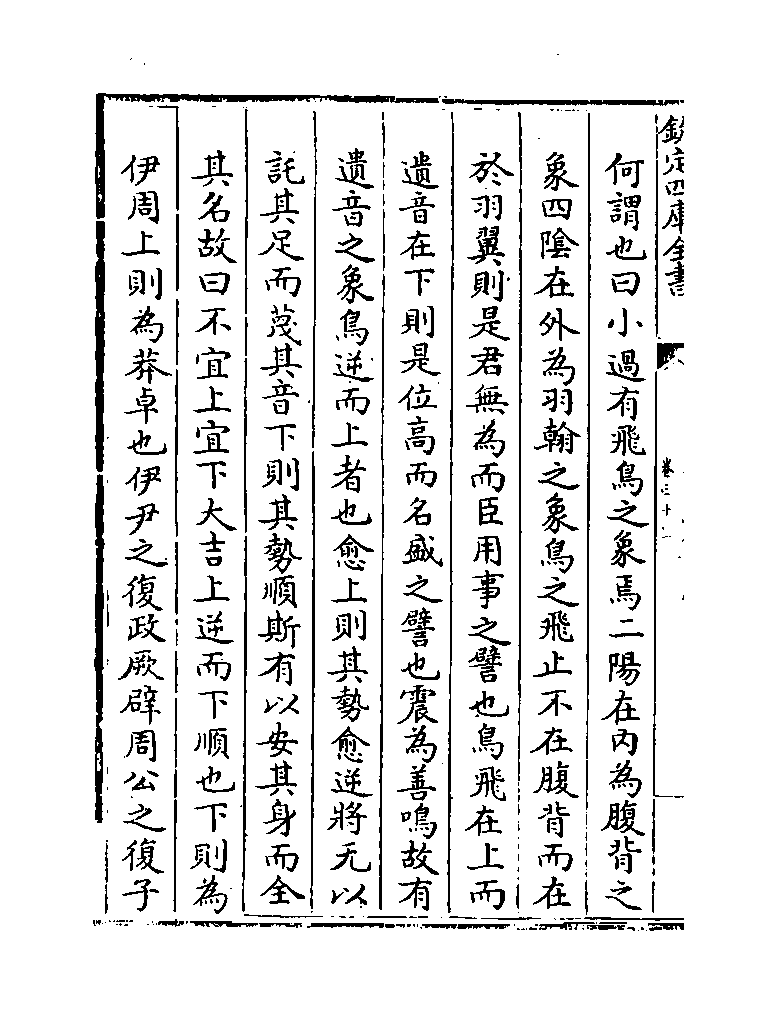 欽定四庫全書
卷三十一
何謂也曰小過有飛鳥之象焉二陽在内為腹背之
象四陰在外為羽翰之象鳥之飛止不在腹背而在
於羽翼則是君無為而臣用事之譬也鳥飛在上而
遺音在下則是位高而名盛之譬也震為善鳴故有
遺音之象鳥逆而上者也愈上則其勢愈逆將无以
託其足而蔑其音下則其勢順斯有以安其身而全
其名故曰不宜上宜下大吉上逆而下順也下則為
伊周上則為莽卓也伊尹之復政厥辟周公之復子